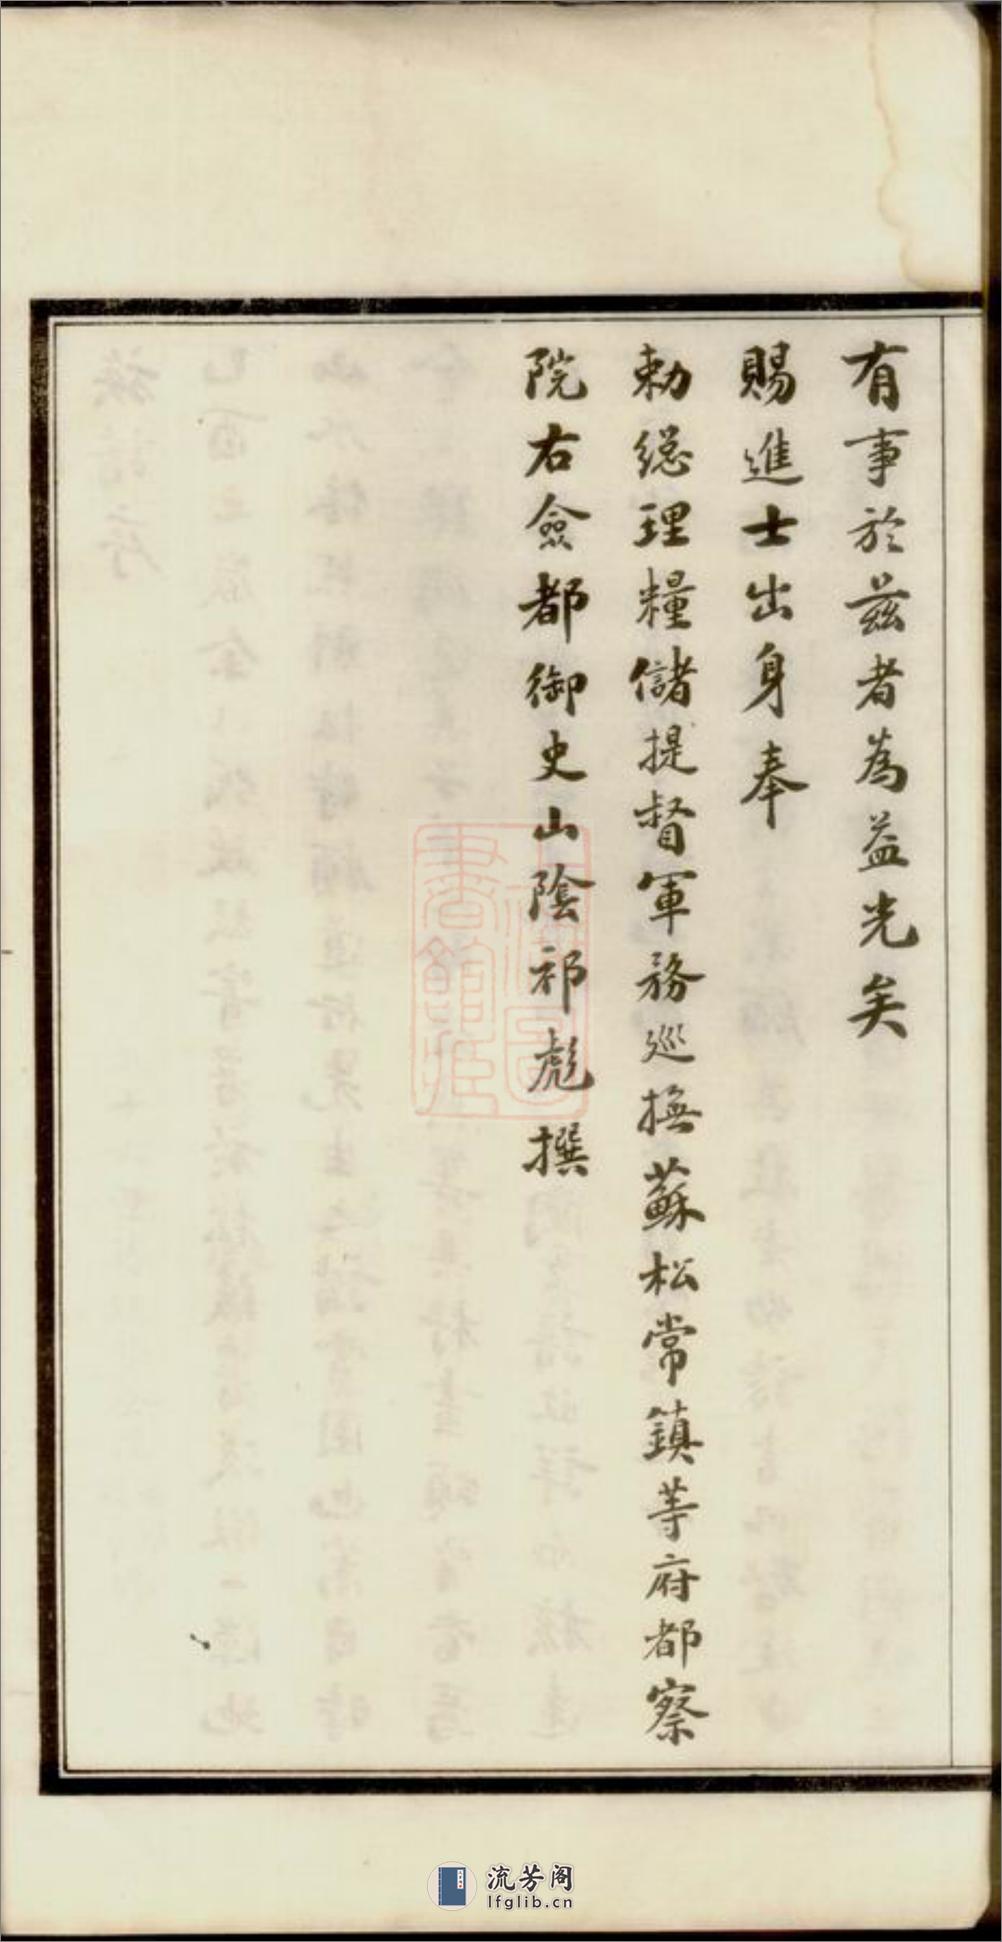 有事於茲者為益光矣
賜進士出身奉
勅總理糧儲提督軍務巡撫蘇松常鎮等府都察
院右僉都御史山陰祁彪撰
流芳阁
lfglib.cn